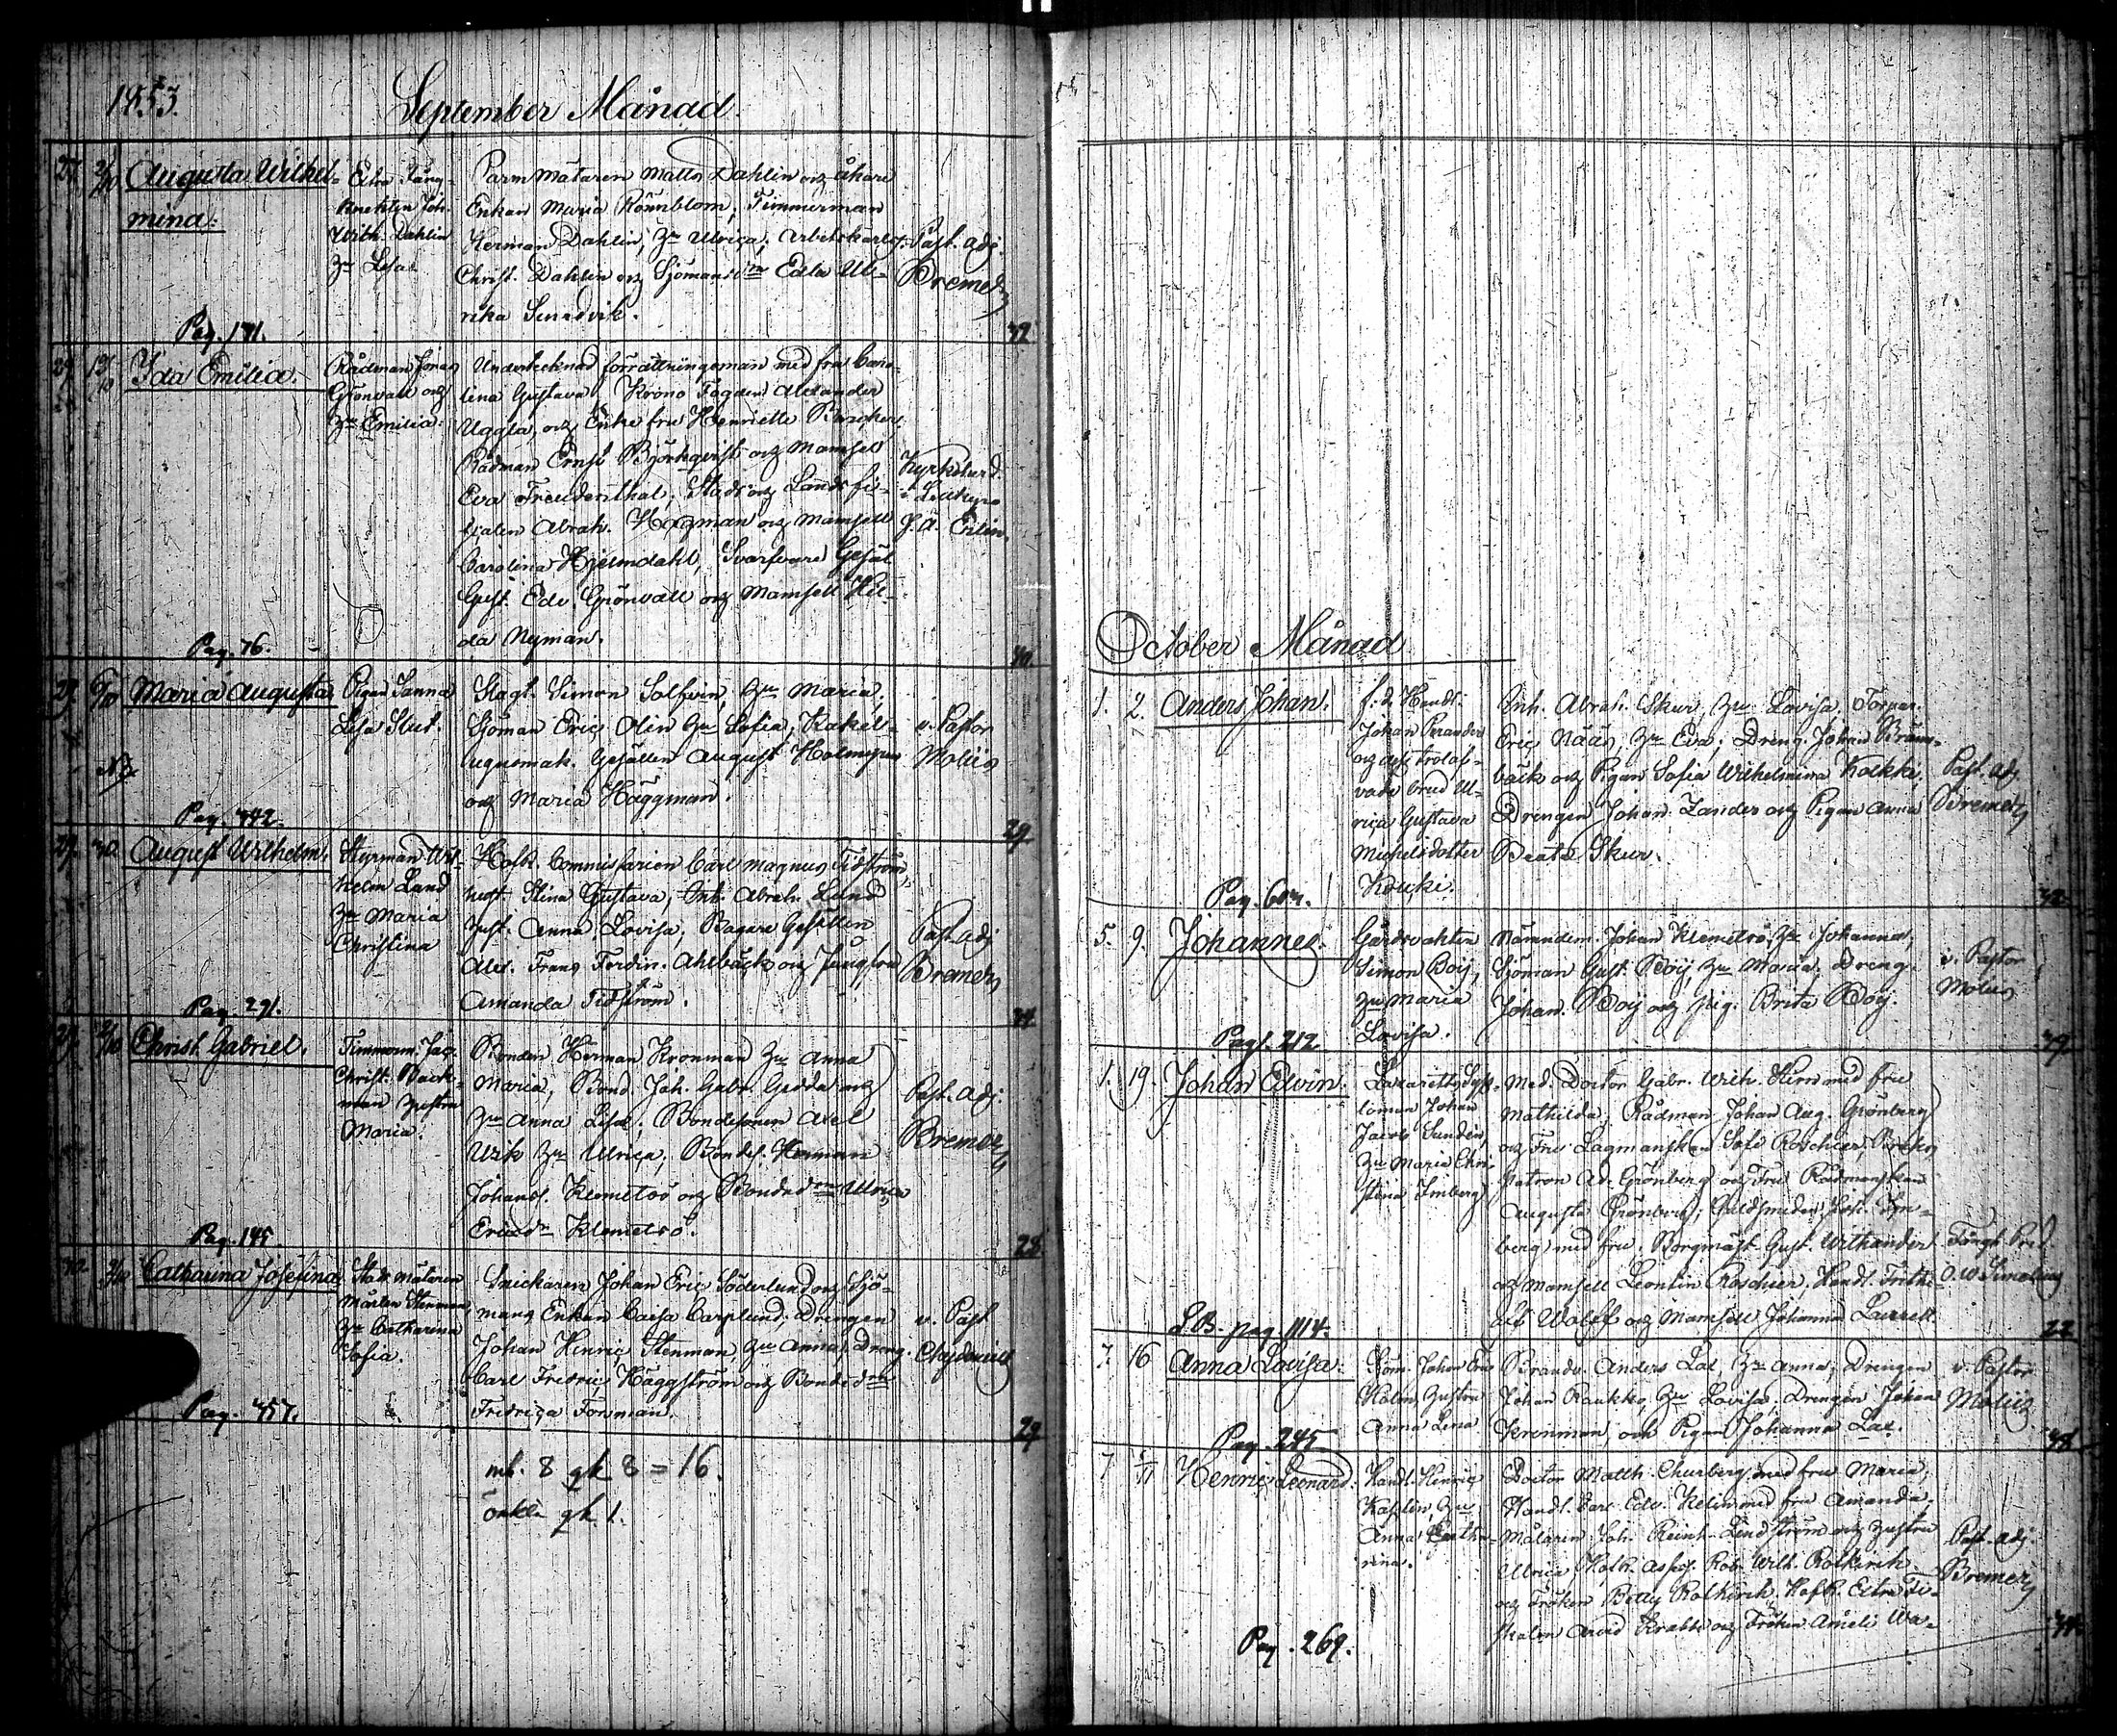 1853.
September Månad.
27. 2/10 Augusta Wilhel-
mina.
Extra Fång-
knekten Joh.
Wilh. Dahlin
Hu Lisa
Parmmätaren Matts Dahlin och åkare
Enkan Maria Rönnblom, Timmerman
Herman Dahlin, Hu Ulrica, Arbetskarlen
Christ. Dahlin och Sjömansd:n Edla Ul-
rika Sundvik.
Past. adj.
Bremer
Pag. 171.
32.
29. Ida Emilia.
Rådman Jonas
Grönvall och
Hu Emilia.
Undertecknad förrättningsman med fru Caro-
lina Gustava, Krono Fogden Alexander
Uggla, och Enke fru Henriette
Rådman Ernst Björkqvist och Mamsell
Eva Freudenthal; Stads och Landsfis-
kalen Abrah. Hagman och Mamsell
Carolina Hjelmdahl, Svarfvare Gesäl
Gust. Edv. Grönvall och Mamsell Hil-
da Nyman.
Kyrkoherd.
i
Pag. 76.
40.
29. Maria Augusta
Pigan Sanna
Lisa Slut.
Slagt. Simon Solfvin, Hu Maria,
Sjöman Eric Olin Hu Sofia, Kakel-
ugnsmak. Gesällen August Holmgren
och Maria Häggman.
v. Pastor
Moliis
Pag. 342.
29.
29. 30. August Wilhelm.
Styrman Wil-
helm Lund
Hu Maria
Christina
Hofr. Commissarien Carl Magnus Tidström
hust. Stina Gustava, Inh. Abrah. Lund
hust. Anna Lovisa, Bagare Gesällen
Alex. Frans Ferdin. Ahlbäck och Jungfru
Amanda Tidström.
Past. adj
Bremer
Pag. 291.
34.
29. 2/10 Christ. Gabriel.
Timmerm. Jac.
Christ. Back-
man hustru
Maria.
Bonden Herman Kronman Hu Anna
Maria, Bond. Joh. Gabr. Gedda och
Hu Anna Lisa; Bondesonen Axel
Urik Hu Ulrica; Bondes. Herman
Johans. Klemetsö och Bonded:n Ulrica
Ericsdr Klemetsö.
Past. adj.
Bremer
Pag. 145.
28.
30. 3/10 Catharina Josefina
Stads mätaren
Mårten Stenman,
Hu Catharina
Sofia.
Snickaren Johan Eric Söderlund och Sjö-
mans Enkan Caisa Carplund; Drengen
Johan Henric Stenman, Hu Anna, Dreng.
Carl Fredric Häggström och Bonded:n
Fredrica Forsman.
v. Past
Chydenius
Pag. 357.
29.
mk. 8 qk 8 = 16.
oäkta qk. 1.
October Månad
1. 2. Anders Johan.
f. d. Handl.
Johan Perander
och dess trolof-
vade brud Ul-
rica Gustava
Michelsdotter
Kouki.
Inh. Abrah. Skur, Hu Lovisa, Torpar.
Eric Nääs, Hu Eva; Dreng. Johan Bränn-
bäck och Pigan Sofia Wilhelmina Kalkki,
Drengen Johan Lander och Pigan Anna
Beata Skur.
Past. adj.
Bremer
Pag. 603.
32.
5. 9. Johannes.
Gårdvakten
Simon Boij,
Hu Maria
Lovisa.
Nämndem. Johan Klemetsö, Hu Johanna,
Sjöman Gust. Boij Hu Maria, Dreng.
Johan Boij och pig. Brita Boij.
v. Pastor
Moliis
Pag. 212.
39.
1. 19. Johan Edvin.
Lazaretts Syss-
loman Johan
Jacob Sundén,
Hu Maria Chri-
stina Imberg
Med. Doctor Gabr. Wilh. Hirn med fru
Mathilda; Rådman Johan Aug. Grönberg
och Fru Lagmanskan Sofi Roschier, Bruks
Patron Ad. Grönberg och Fru Rådmanskan
Augusta Grönberg; Guldsmeden Joh. Im-
berg med fru, Borgmäst. Gust. Withander
och Mamsell Leontin Roschier, Handl. Frithi-
of Wolff och Mamsell Johanna Laurell.
Fångh. Pred.
O. W. Simelius
S.B. pag. 1114.
22.
7. 16 Anna Lovisa.
Sjöm. Johan Eric
Holm, hustru
Anna Lena
Brandv. Anders Lax, Hu Anna, Drengen
Johan Raukko, Hu Lovisa, Drengen Johan
Kronman, och Pigan Johanna Lax.
v. Pastor
Moliis
Pag. 245.
38.
7 Henric Leonard.
Handl. Henric
Kasslin, Hu
Anna Catha-
rina.
Doctor Matth. Churberg med fru Maria,
Handl. Carl Edv. Helin med fru Amanda,
Målaren Joh. Reinh. Lindström och hustru
Ulrica, Hofr. Assess. Rob. Wilh. Rotkirch
och Fröken Betty Rotkirch, Hofr. Extra Fi-
skalen Arvid Krabbe och Fröken Amelie Wa-
Past. adj.
Bremer
Pag. 269.
34.